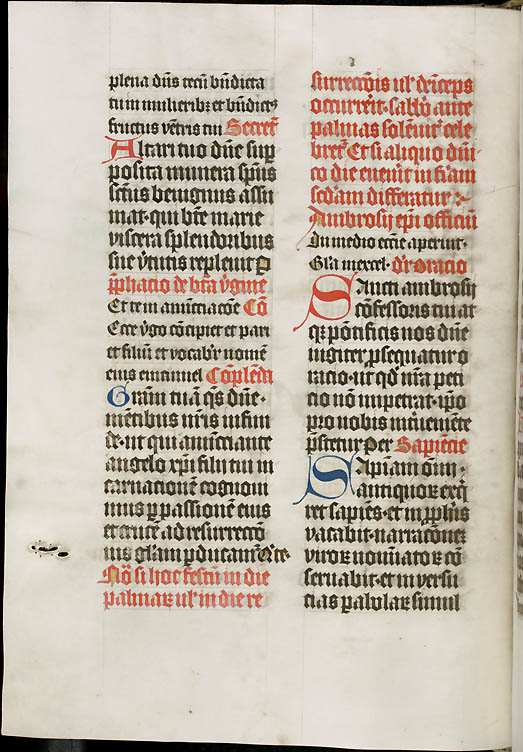 plena dñs tecũ bñdicta
tu in mulieribꝫ et bñdict⁹
fructus vẽtris tui Secret̃
Altari tuo dñe suꝑ
posita munera sp̃us
sctũs benignus assu
mat · qui bt̃e marie
viscera splendoribus
sue ṽtutis repleuit
p̃phacio de bt̃a ṽgine
Et te in anũciacõe Cõ
Ecce ṽgo cõcipiet et pari
et filiũ et vocabit̃ nomẽ
eius emanuel Cõplenda
Grãm tuã q̃s dñe ·
mẽtibus nr̃is infun
de · ut qui anũciante
angelo xp̃i filij tui in
carnacionẽ cognoui
mus ꝑ passionẽ eius
et crucẽ ad resurrecciõ
nis glãm ꝑducamr̃
Nõ si hoc festũ in die
palmaꝝ ul̃ in die re
surreccõis ul̃ deĩceps
occurrẽit · sabbõ ante
palmas solẽnit̃ cele
bret̃ Et si aliquo dñi
co die euen̾it in fi᷑am
scd᷑am differatur
Ambrosij ep̃i officiũ
In medio ecc̃ie aperuit ·
Gl̃a in excel · d̾r oracio
Sancti ambrosij
cõfessoris tui at
qꝫ põtificis nos dñe
iugiter ꝓsequatur o
racio · ut qd̃ nr̃a peti
cio nõ impetrat · ip̃o
pro nobis intẽuenẽte
p̃stetur Per Sapiẽcie
Sapiãm om̃ĩ ·
antiquoꝝ exq̃
ret sapiẽs · et in ꝓph̾is
vacabit · narracõnẽ
viroꝝ noĩatoꝝ cõ
seruabit · et in versu
cias ꝑabolaꝝ simul